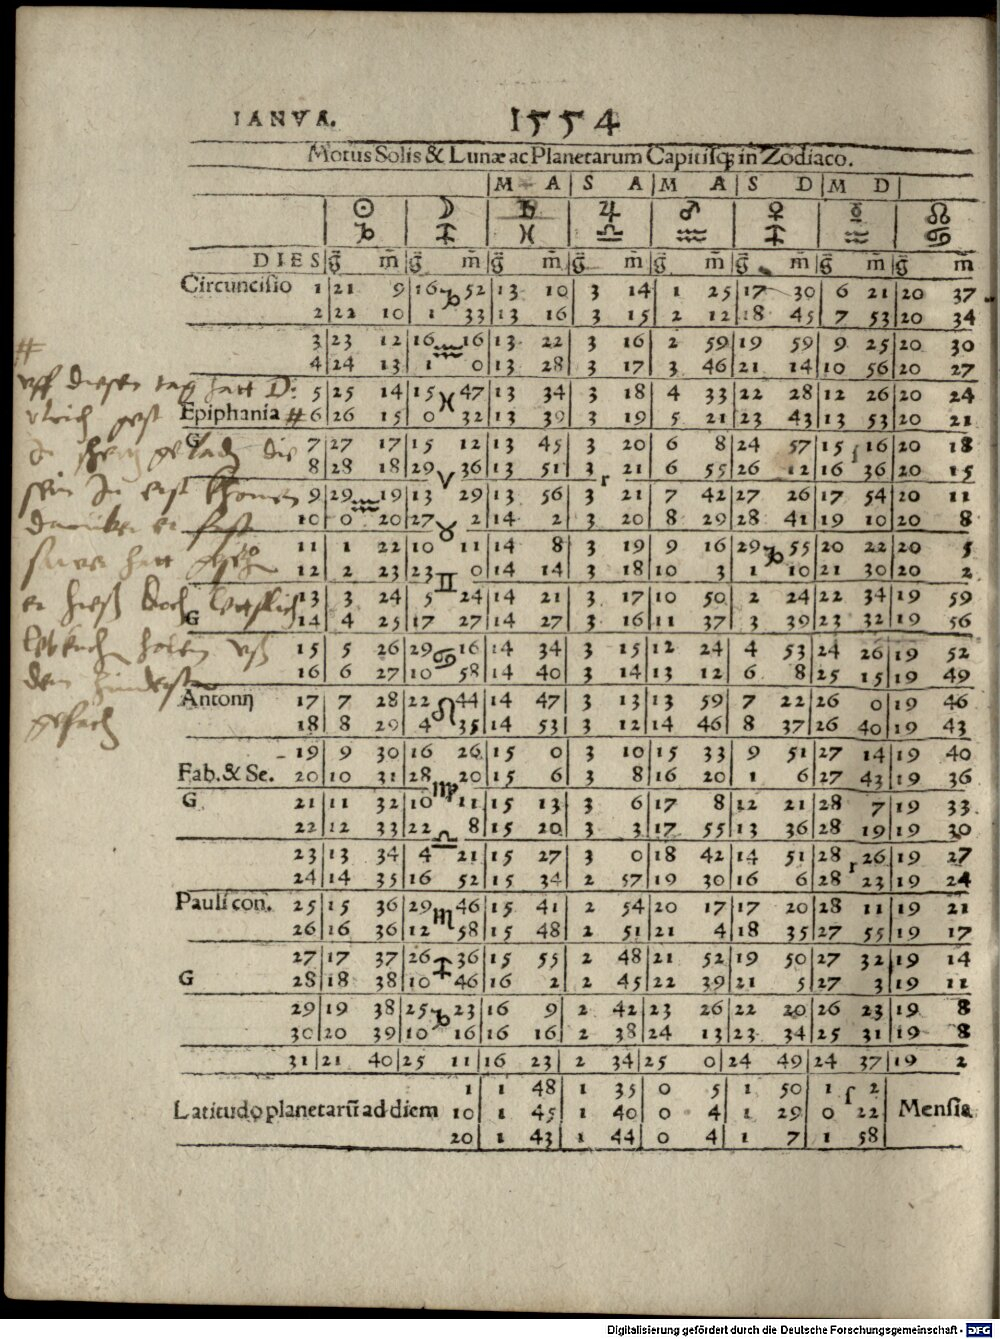 IANVA. 1554
Motus Solis & Lunæ ac Planetarum Capitisq; in Zodiaco.
M A S A M A S D M D
☉ ☽ ♄ ♃ ♂ ♀ ☿ ☊
♑ ♐ ♓ ♎ ♒ ♐ ♒ ♋
DIES g̃ m̃ g̃ m̃ g̃ m̃ g̃ m̃ g̃ m̃ g̃ m̃ g̃ m̃ g̃ m̃
Circuncisio 1 21 9 16 ♑ 52 13 10 3 14 1 25 17 30 6 21 20 37
2 22 10 1 33 13 16 3 15 2 12 18 45 7 53 20 34
3 23 12 16 ♒ 16 13 22 3 16 2 59 19 59 9 25 20 30
4 24 13 1 0 13 28 3 17 3 46 21 14 10 56 20 27
5 25 14 15 ♓ 47 13 34 3 18 4 33 22 28 12 26 20 24
Epiphania # 6 26 15 0 32 13 39 3 19 5 21 23 43 13 53 20 21
G 7 27 17 15 12 13 45 3 20 6 8 24 57 15 ſ 16 20 18
8 28 18 29 ♈ 36 13 51 3 r 21 6 55 26 12 16 36 20 15
9 29 ♒ 19 13 29 13 56 3 21 7 42 27 26 17 54 20 11
10 0 20 27 ♉ 2 14 2 3 20 8 29 28 41 19 10 20 8
11 1 22 10 11 14 8 3 19 9 16 29 ♑ 55 20 22 20 5
12 2 23 23 ♊ 0 14 14 3 18 10 3 1 10 21 30 20 2
13 3 24 5 24 14 21 3 17 10 50 2 24 22 34 19 59
G 14 4 25 17 27 14 27 3 16 11 37 3 39 23 32 19 56
15 5 26 29 ♋ 16 14 34 3 15 12 24 4 53 24 26 19 52
16 6 27 10 58 14 40 3 14 13 12 6 8 25 15 19 49
Antonij 17 7 28 22 ♌ 44 14 47 3 13 13 59 7 22 26 0 19 46
18 8 29 4 35 14 53 3 12 14 46 8 37 26 40 19 43
19 9 30 16 26 15 0 3 10 15 33 9 51 27 14 19 40
Fab. & Se. 20 10 31 28 ♍ 20 15 6 3 8 16 20 1 6 27 43 19 36
G 21 11 32 10 11 15 13 3 6 17 8 12 21 28 7 19 33
22 12 33 22 ♎ 8 15 20 3 3 17 55 13 36 28 19 19 30
23 13 34 4 21 15 27 3 0 18 42 14 51 28 r 26 19 27
24 14 35 16 52 15 34 2 57 19 30 16 6 28 23 19 24
Pauli con. 25 15 36 29 ♏ 46 15 41 2 54 20 17 17 20 28 11 19 21
26 16 36 12 58 15 48 2 51 21 4 18 35 27 55 19 17
27 17 37 26 ♐ 36 15 55 2 48 21 52 19 50 27 32 19 14
G 28 18 38 10 46 16 2 2 45 22 39 21 5 27 3 19 11
29 19 38 25 ♑ 23 16 9 2 42 23 26 22 20 26 23 19 8
30 20 39 10 16 16 16 2 38 24 13 23 34 25 31 19 8
31 21 40 25 11 16 23 2 34 25 0 24 49 24 37 19 2
1 1 48 1 35 0 5 1 50 1 ſ 2
Latitudo planetarũ ad diem 10 1 45 1 40 0 4 1 29 0 22 Mensis
20 1 43 1 44 0 4 1 7 1 58
#
uff diesen tag hatt D:
Digitalisierung gefördert durch die Deutsche Forschungsgemeinschaft - DFG